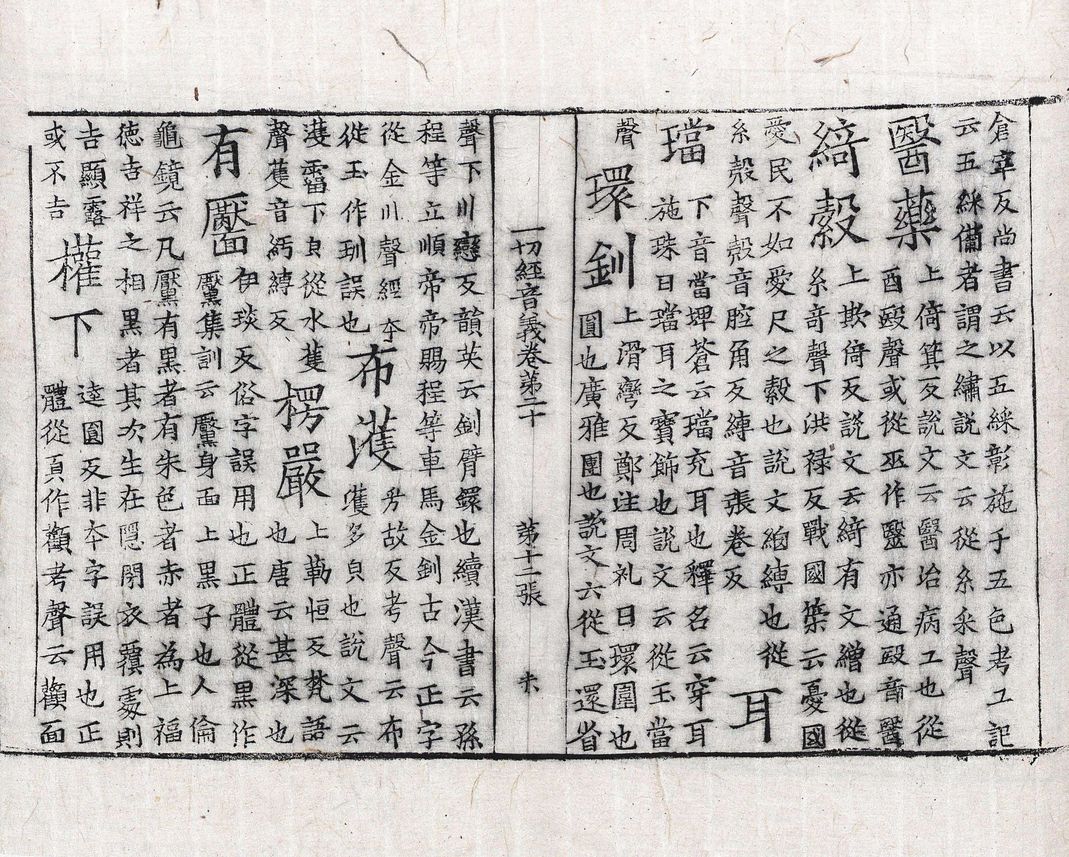 倉宰反尚書云以五綵彰施于五色考工記
云五綵備者謂之繡說文云從糸采聲
醫藥
上倚箕反說文云醫治病工也從
酉殹聲或從巫作毉亦通殹音醫
綺縠
上欺倚反說文云綺有文繒也從
糸奇聲下洪祿反戰國策云憂國
愛民不如愛尺之縠也說文細縛也從
糸殼聲殼音腔角反縛音張卷反
耳
璫
下音當埤蒼云璫充耳也釋名云穿耳
施珠曰璫耳之寶飾也說文云從玉當
聲
環釧
上滑彎反鄭注周礼曰環圍也
圓也廣雅圍也說文六從玉還省
一切經音義卷第二十 第十二張
聲下川戀反韻英云釧臂鐶也續漢書云孫
程等立順帝帝賜程等車馬金釧古今正字
從金川聲經本
從玉作玔誤也
布濩
胡故反考聲云布
濩多皃也說文云
濩霤下皃從水蒦
聲蒦音紆縛反
楞嚴
上勒恒反梵語
也唐云甚深也
有黶
伊琰反俗字誤用也正體從黑作
黶集訓云黶身面上黑子也人倫
龜鏡云凡黶有黑者有朱色者赤者為上福
德吉祥之相黑者其次生在隱閉衣覆處則
吉顯露
或不吉
權下
逵圓反非本字誤用也正
體從頁作顴考聲云顴面